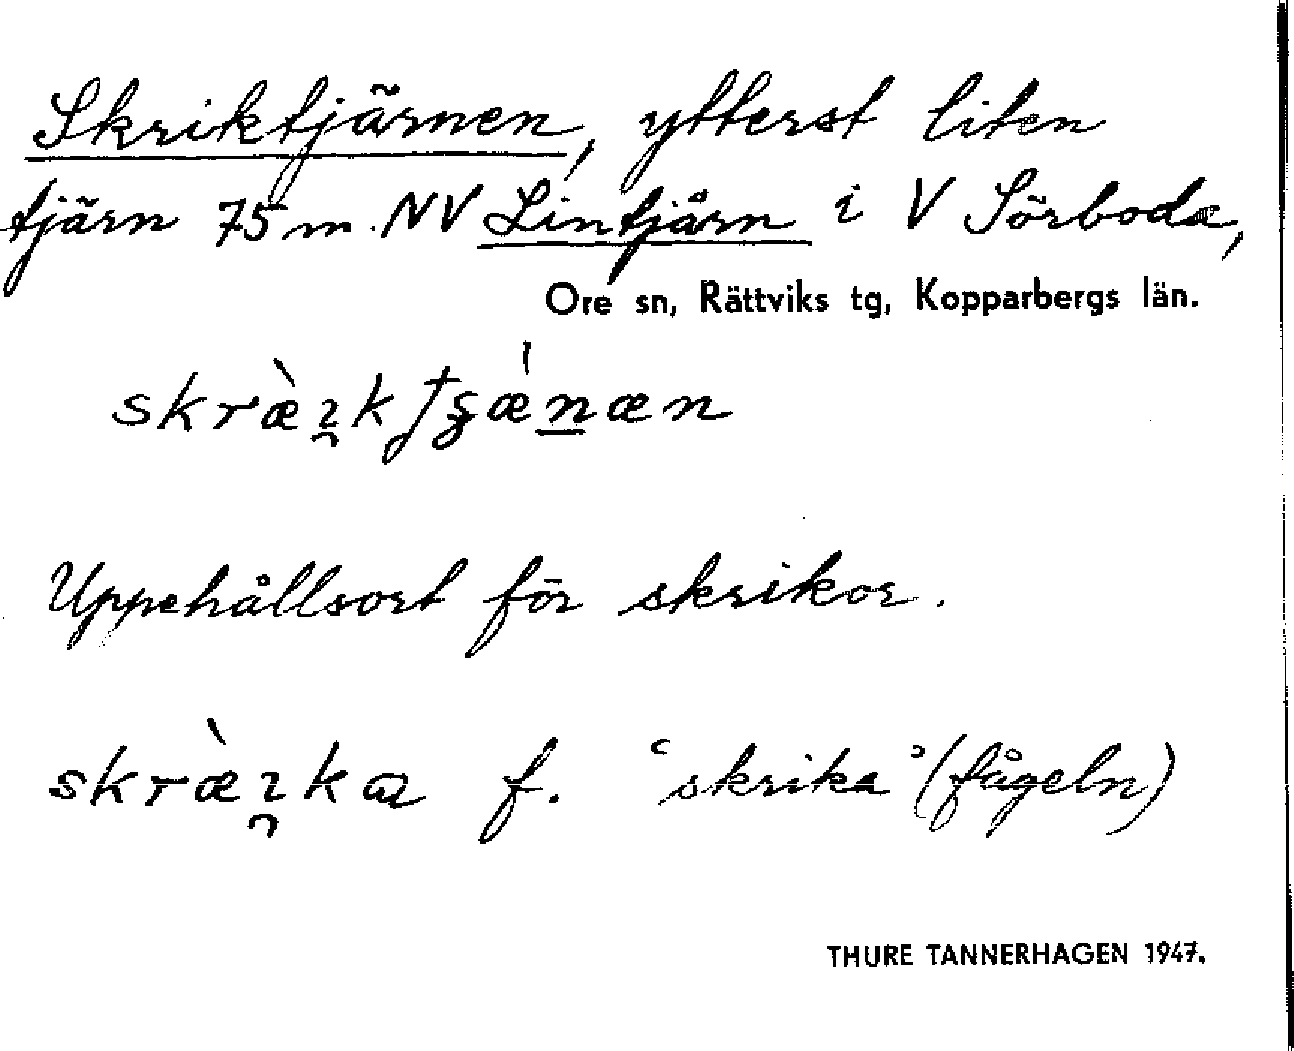 Skriktjärnen, ytterst liten
tjärn 75 m NV Lintjärn i V Sörboda,
Ore sn, Rättviks tg, Kopparbergs län.
Uppehållsort för skrikor.
f. ‘skrika’ (fågeln)
THURE TANNERHAGEN 1947.